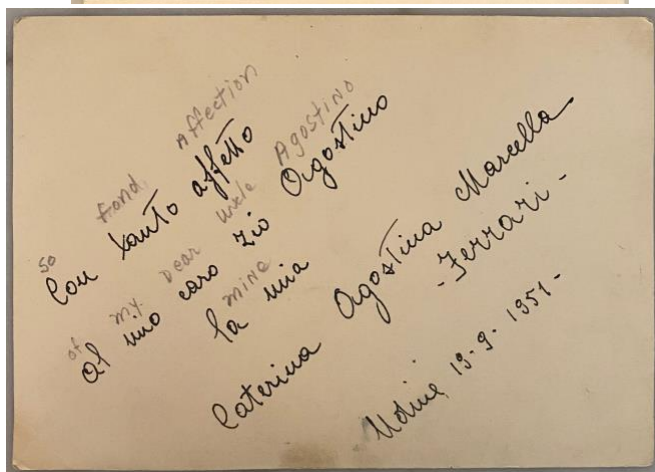 so fond Affection
Con tanto affetto
of my Dear uncle Agostino
Al mio caro zio Agostino
mine
la mia
Caterina Agostina Marcella
- Ferrari -
Udine, 19-9-1951-